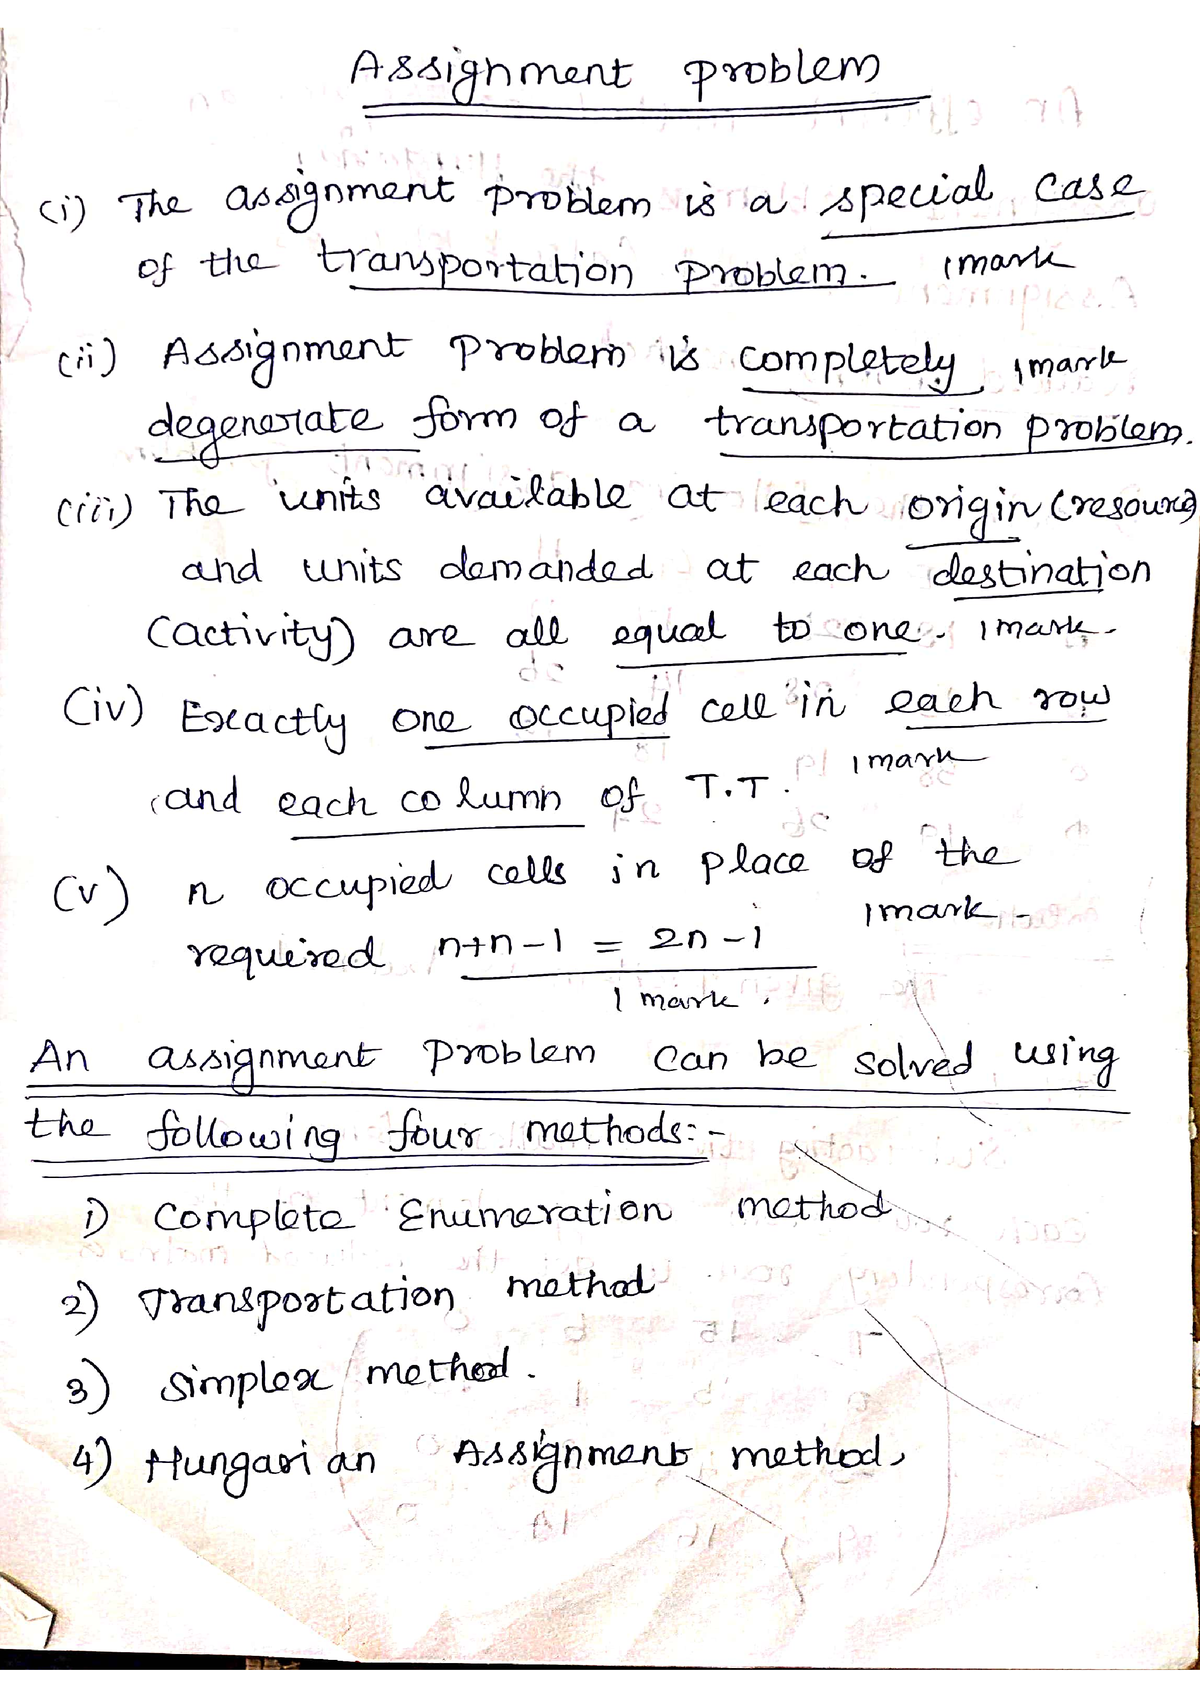 Assignment problem
(i) The assignment problem is a special case
of the transportation problem. 1mark
(ii) Assignment problem is completely 1mark
degenerate form of a transportation problem.
(iii) The units available at each origin (resource)
and units demanded at each destination
(activity) are all equal to one. 1mark.
(iv) Exactly one occupied cell in each row
1mark
and each column of T.T.
(v) n occupied cells in place of the
1mark
required n+n-1 = 2n-1
1 mark.
An assignment problem can be solved using
the following four methods:-
1) Complete Enumeration method
2) Transportation method
3) Simplex method.
4) Hungarian Assignment method,